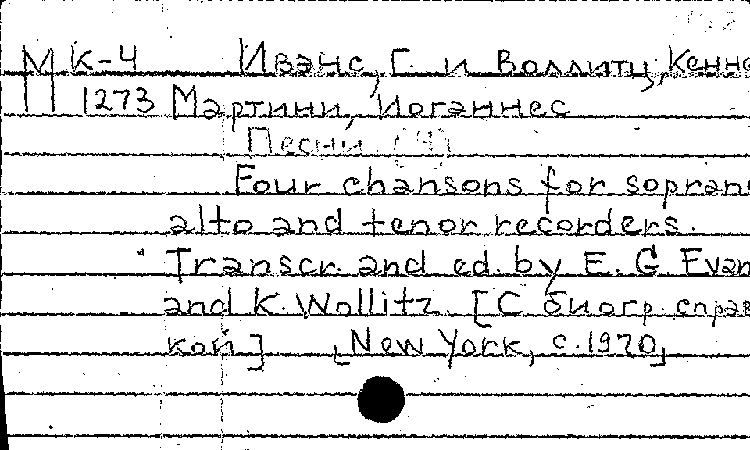 М К-4 Иванс, Г. и Воллитц, Кенне
1273 Мартини, Иоганнес
Песни (4)
Four chansons for sopran
alto and tenor recorders.
Transcr. and ed. by E. G. Evan
and K. Wollitz. [С биогр. справ
кой] [New York, c. 1970]